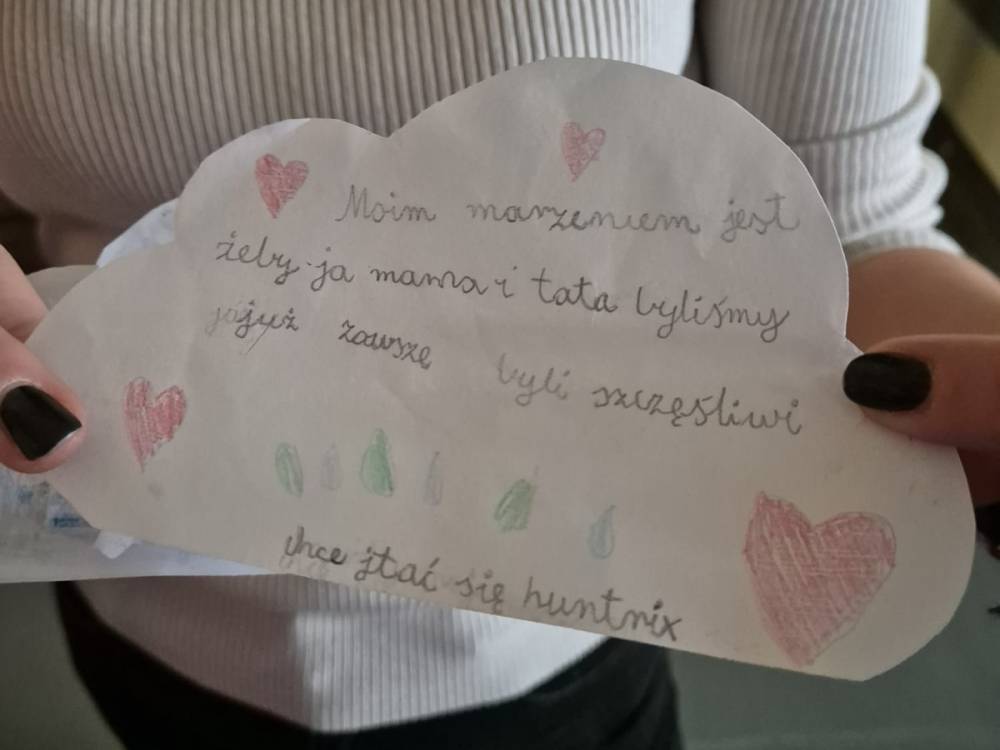 Moim marzeniem jest
żeby ja mama i tata byliśmy
już zawsze byli szczęśliwi
chce stać się huntrix